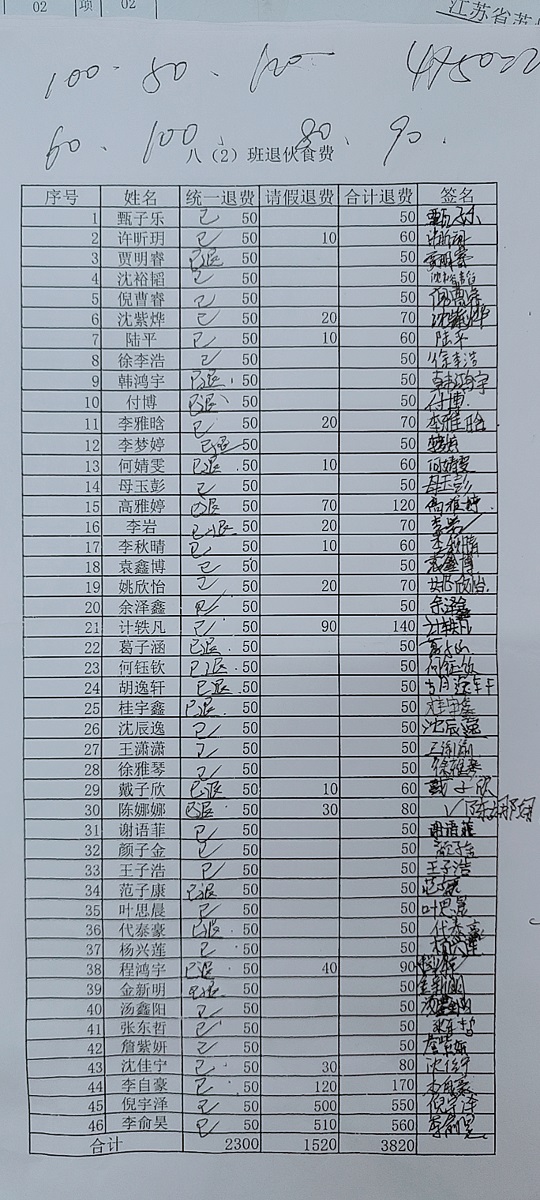 02 项 02
江苏省苏
100. 80. 120
60. 100. 80. 90.
八（2）班退伙食费
序号 姓名 统一退费 请假退费 合计退费 签名
1 甄子乐 已 50 50 甄子乐
2 许昕玥 已 50 10 60 许昕玥
3 贾明睿 已退 50 50 贾明睿
4 沈裕韬 已 50 50 沈裕韬
5 倪曹睿 已 50 50 倪曹睿
6 沈紫烨 已 50 20 70 沈紫烨
7 陆平 已 50 10 60 陆平
8 徐李浩 已 50 50 徐李浩
9 韩鸿宇 已退 50 50 韩鸿宇
10 付博 已退 50 50 付博
11 李雅晗 已 50 20 70 李雅晗
12 李梦婷 已退 50 50
13 何婧雯 已退 50 10 60 何婧雯
14 母玉彭 已 50 50 母玉彭
15 高雅婷 已退 50 70 120 高雅婷
16 李岩 已退 50 20 70 李岩
17 李秋晴 已 50 10 60 李秋晴
18 袁鑫博 已 50 50 袁鑫博
19 姚欣怡 已 50 20 70 姚欣怡
20 余泽鑫 已 50 50 余泽鑫
21 计轶凡 已 50 90 140 计轶凡
22 葛子涵 已退 50 50
23 何钰钦 已退 50 50 何钰钦
24 胡逸轩 已退 50 50 胡逸轩
25 桂宇鑫 已退 50 50 桂宇鑫
26 沈辰逸 已 50 50 沈辰逸
27 王潇潇 已 50 50 王潇潇
28 徐雅琴 已 50 50 徐雅琴
29 戴子欣 已退 50 10 60 戴子欣
30 陈娜娜 已退 50 30 80 陈娜娜
31 谢语菲 已 50 50 谢语菲
32 颜子金 已 50 50 颜子金
33 王子浩 已 50 50 王子浩
34 范子康 已退 50 50 范子康
35 叶思晨 已 50 50 叶思晨
36 代泰豪 已退 50 50 代泰豪
37 杨兴莲 已 50 50 杨兴莲
38 程鸿宇 已退 50 40 90
39 金新明 已退 50 50 金新明
40 汤鑫阳 已 50 50 汤鑫阳
41 张东哲 已 50 50 张东哲
42 詹紫妍 已 50 50 詹紫妍
43 沈佳宁 已 50 30 80 沈佳宁
44 李自豪 已 50 120 170 李自豪
45 倪宇泽 已 50 500 550 倪宇泽
46 李俞昊 已 50 510 560 李俞昊
合计 2300 1520 3820